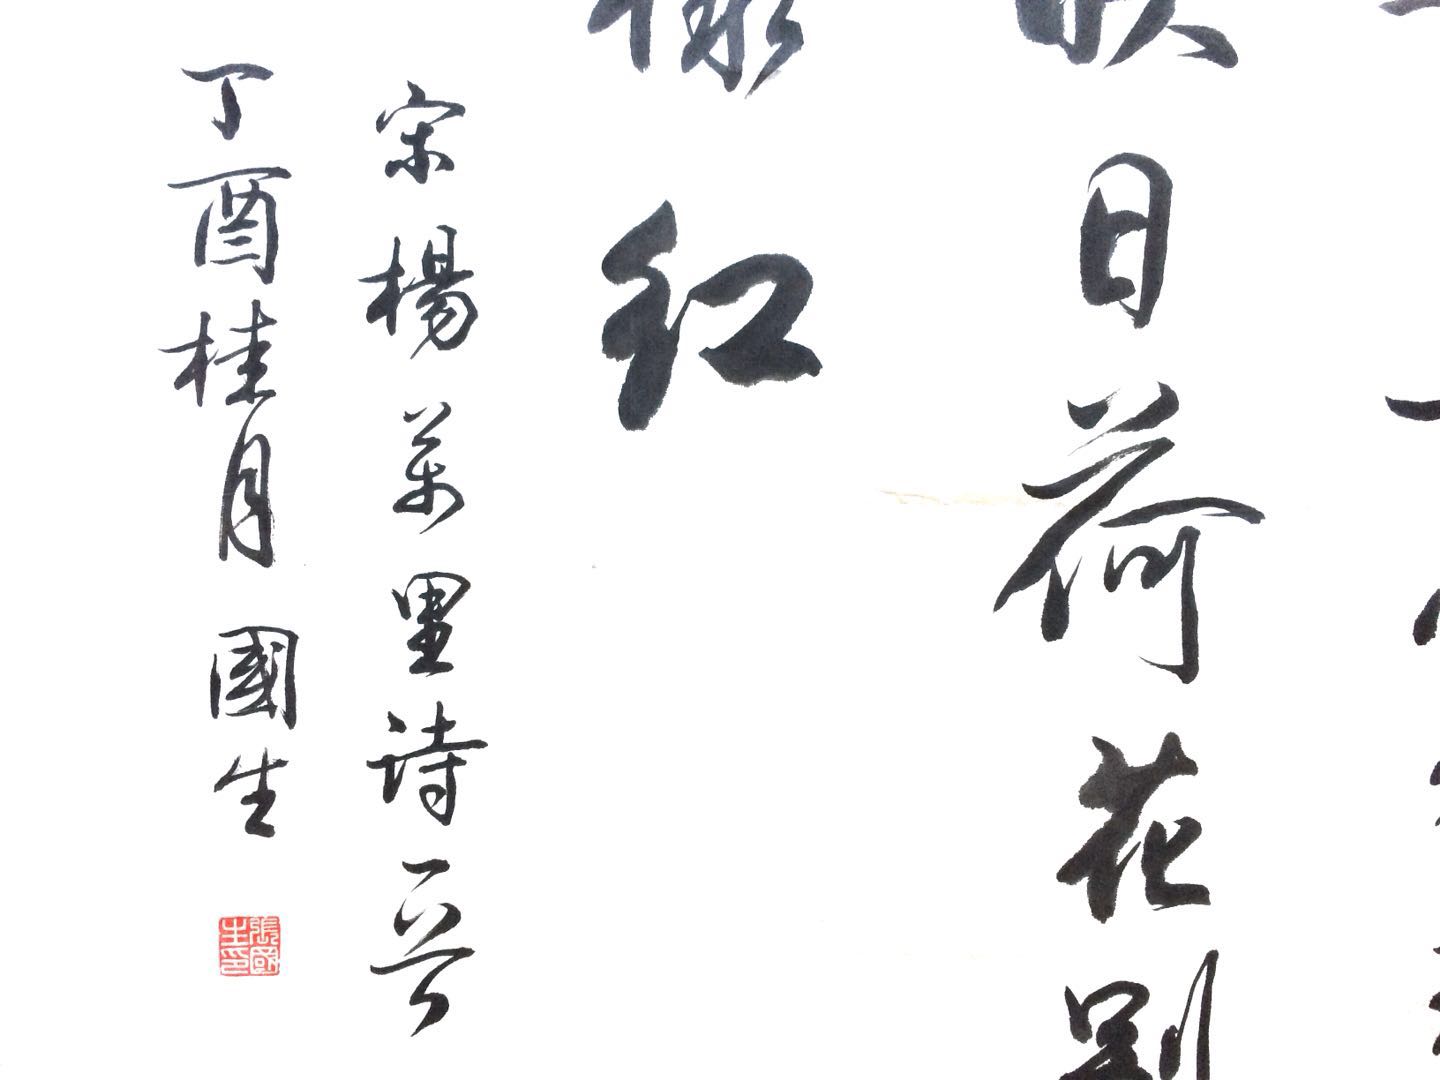 映日荷花别
樣红
宋楊萬里詩一首
丁酉桂月國生
張國生印